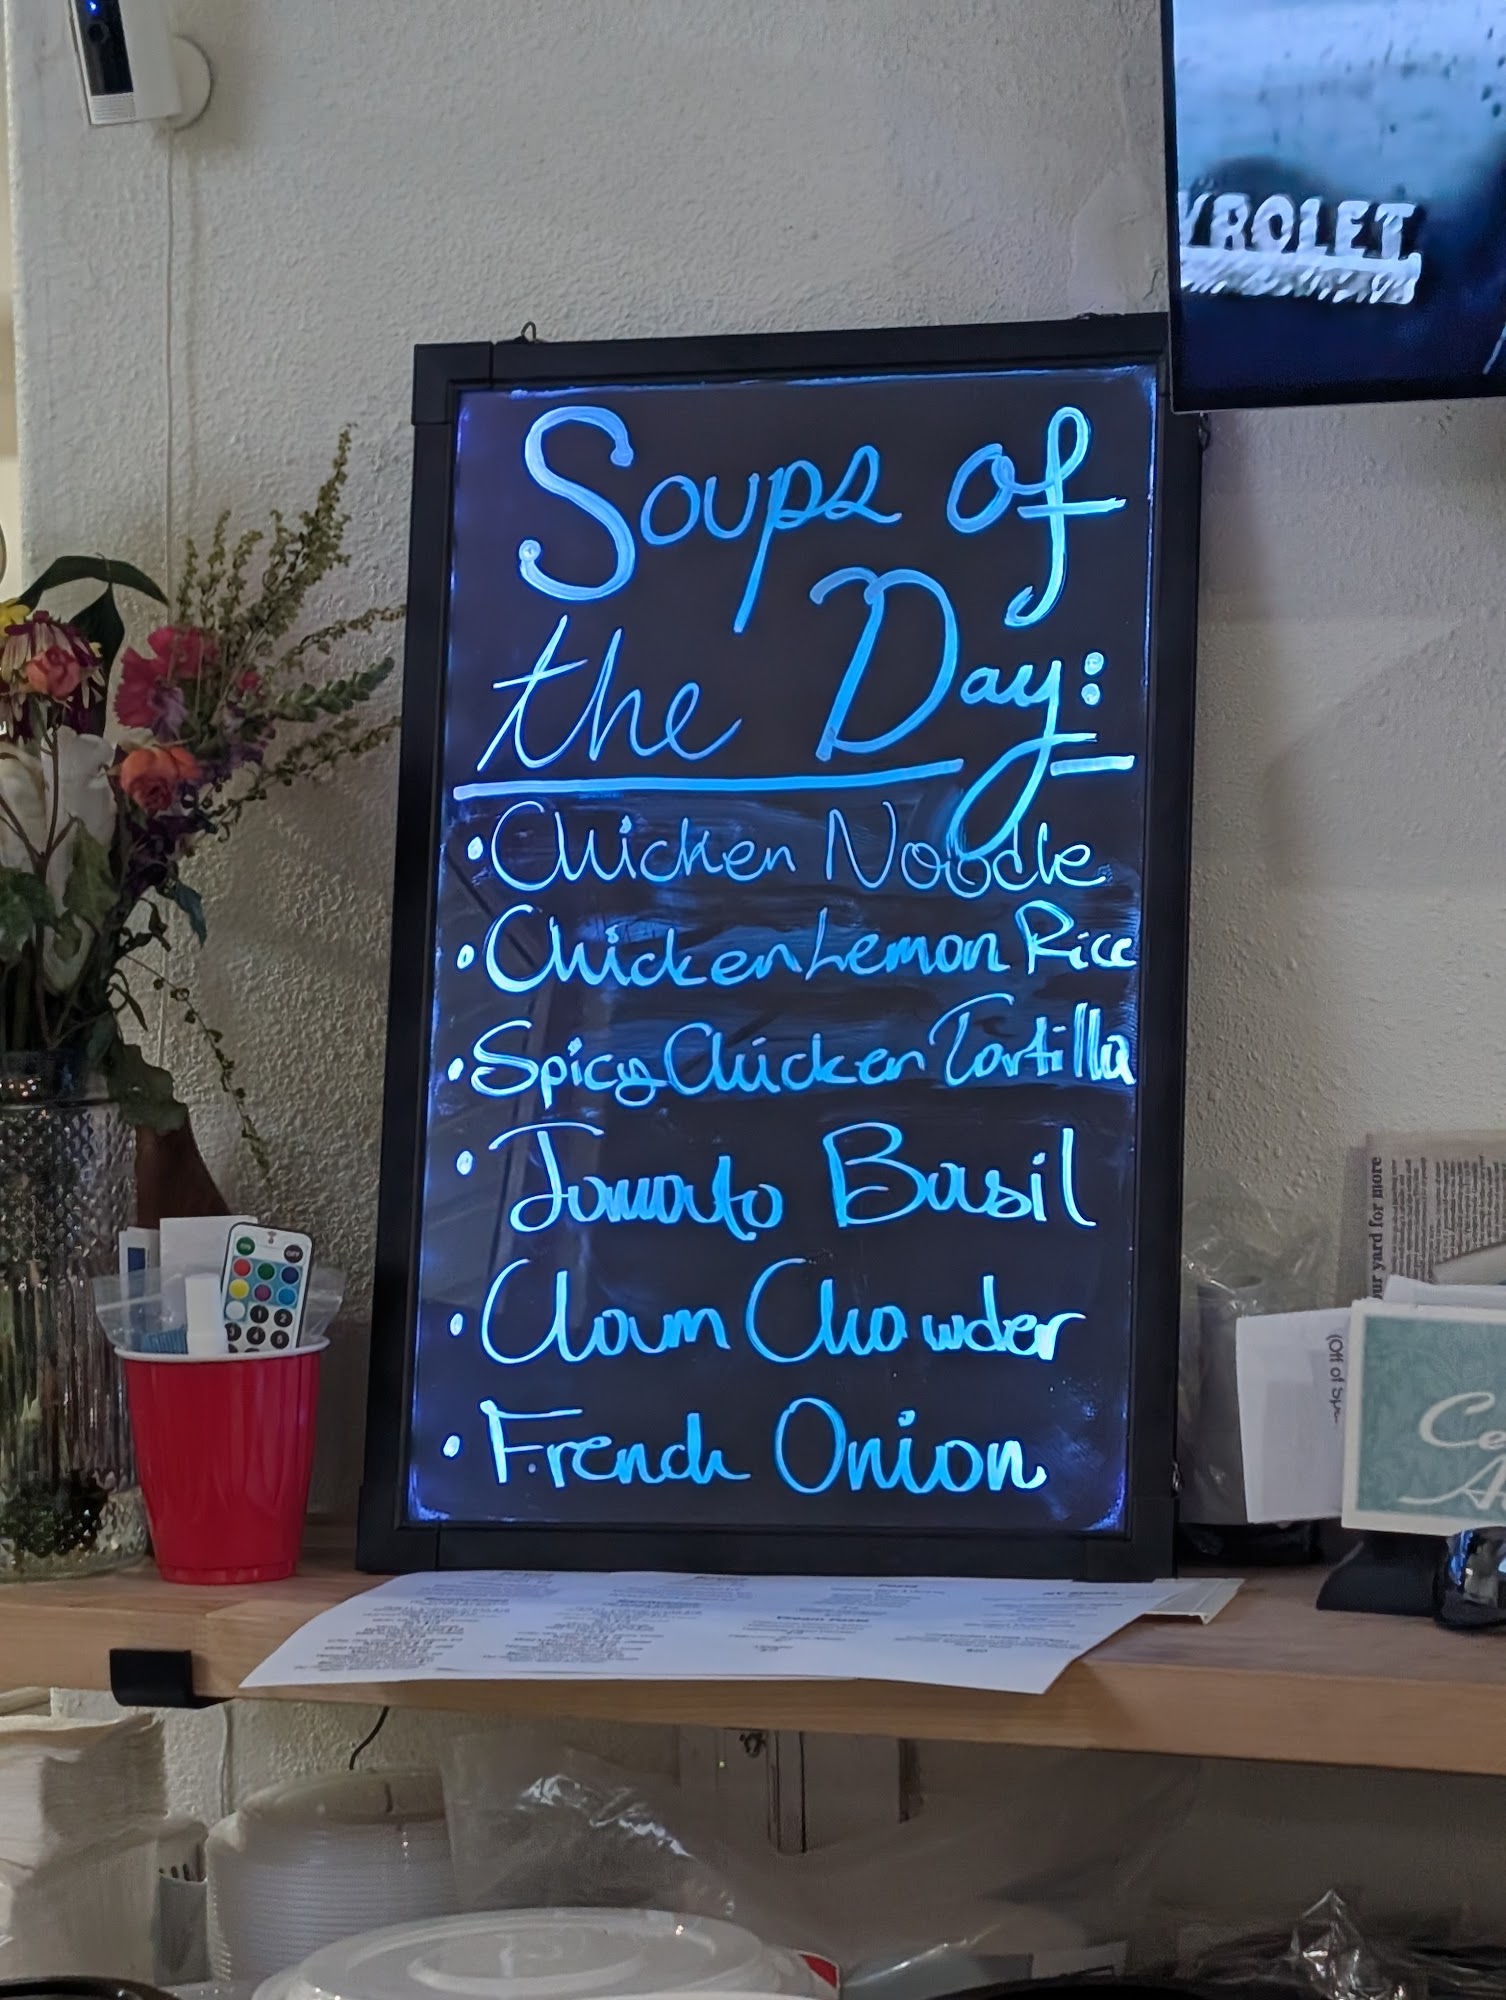 VROLET
Soups of
the Day:
• Chicken Noodle
• Chicken Lemon Rice
• Spicy Chicken Tortilla
• Tomato Basil
• Clam Chowder
• French Onion
ON OFF
our yard for more
(Off of